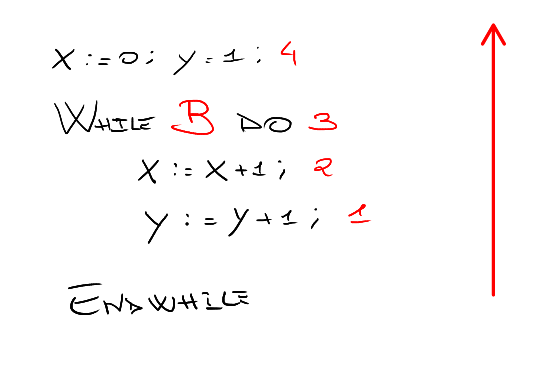 X := 0; Y = 1; 4
WHILE B DO 3
X := X + 1; 2
Y := Y + 1; 1
ENDWHILE